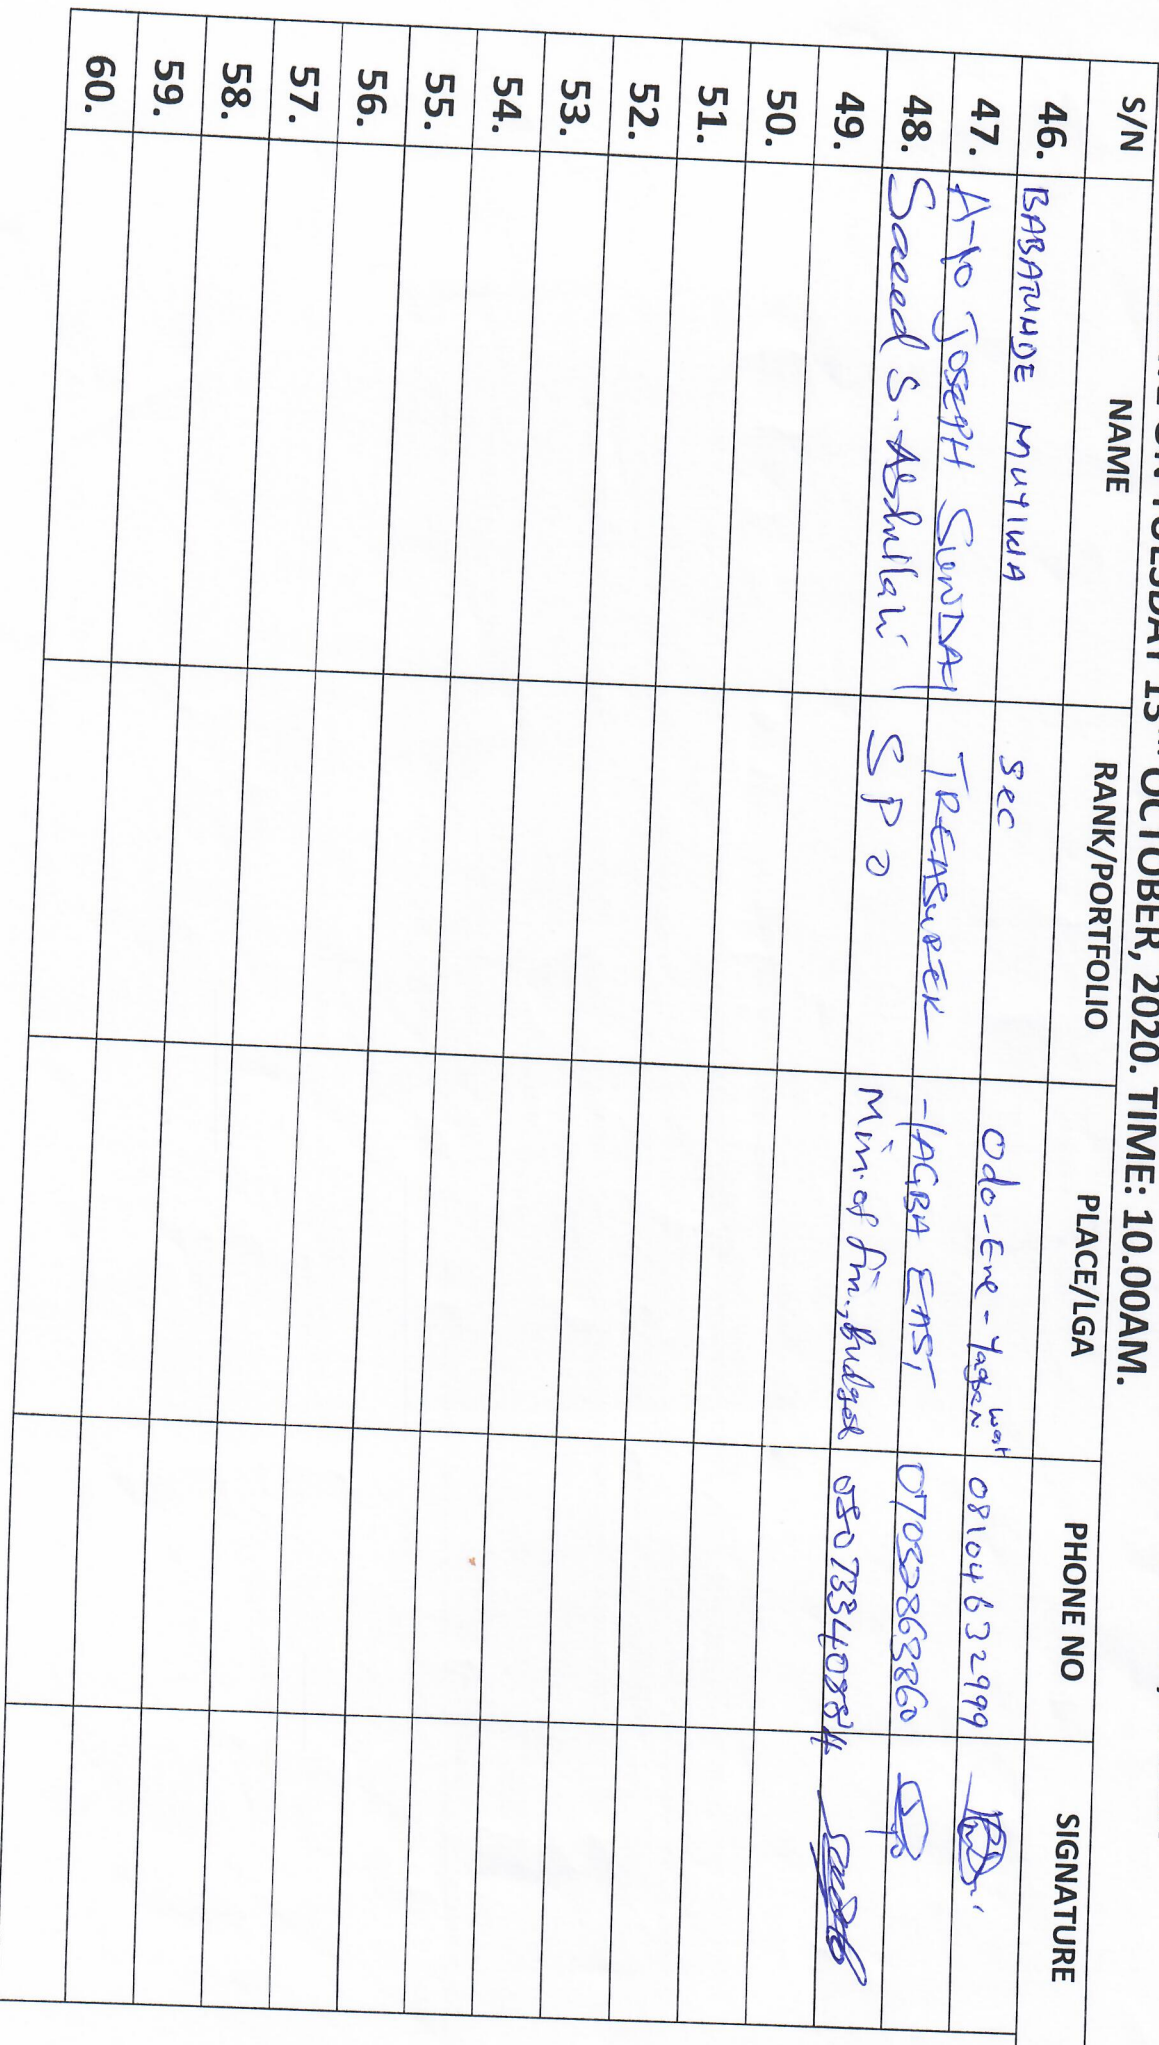 ON TUESDAY 13TH OCTOBER, 2020. TIME: 10.00AM.
S/N NAME RANK/PORTFOLIO PLACE/LGA PHONE NO SIGNATURE
46. BABATUNDE MUYIWA Sec Odo-Ere - Yagba West 08104632999
47. AYO JOSEPH SUNDAY TREASURER YAGBA EAST 07032863860
48. Saeed S. Abdullahi SPO Min. of fin., Budget 08073340884
49.
50.
51.
52.
53.
54.
55.
56.
57.
58.
59.
60.